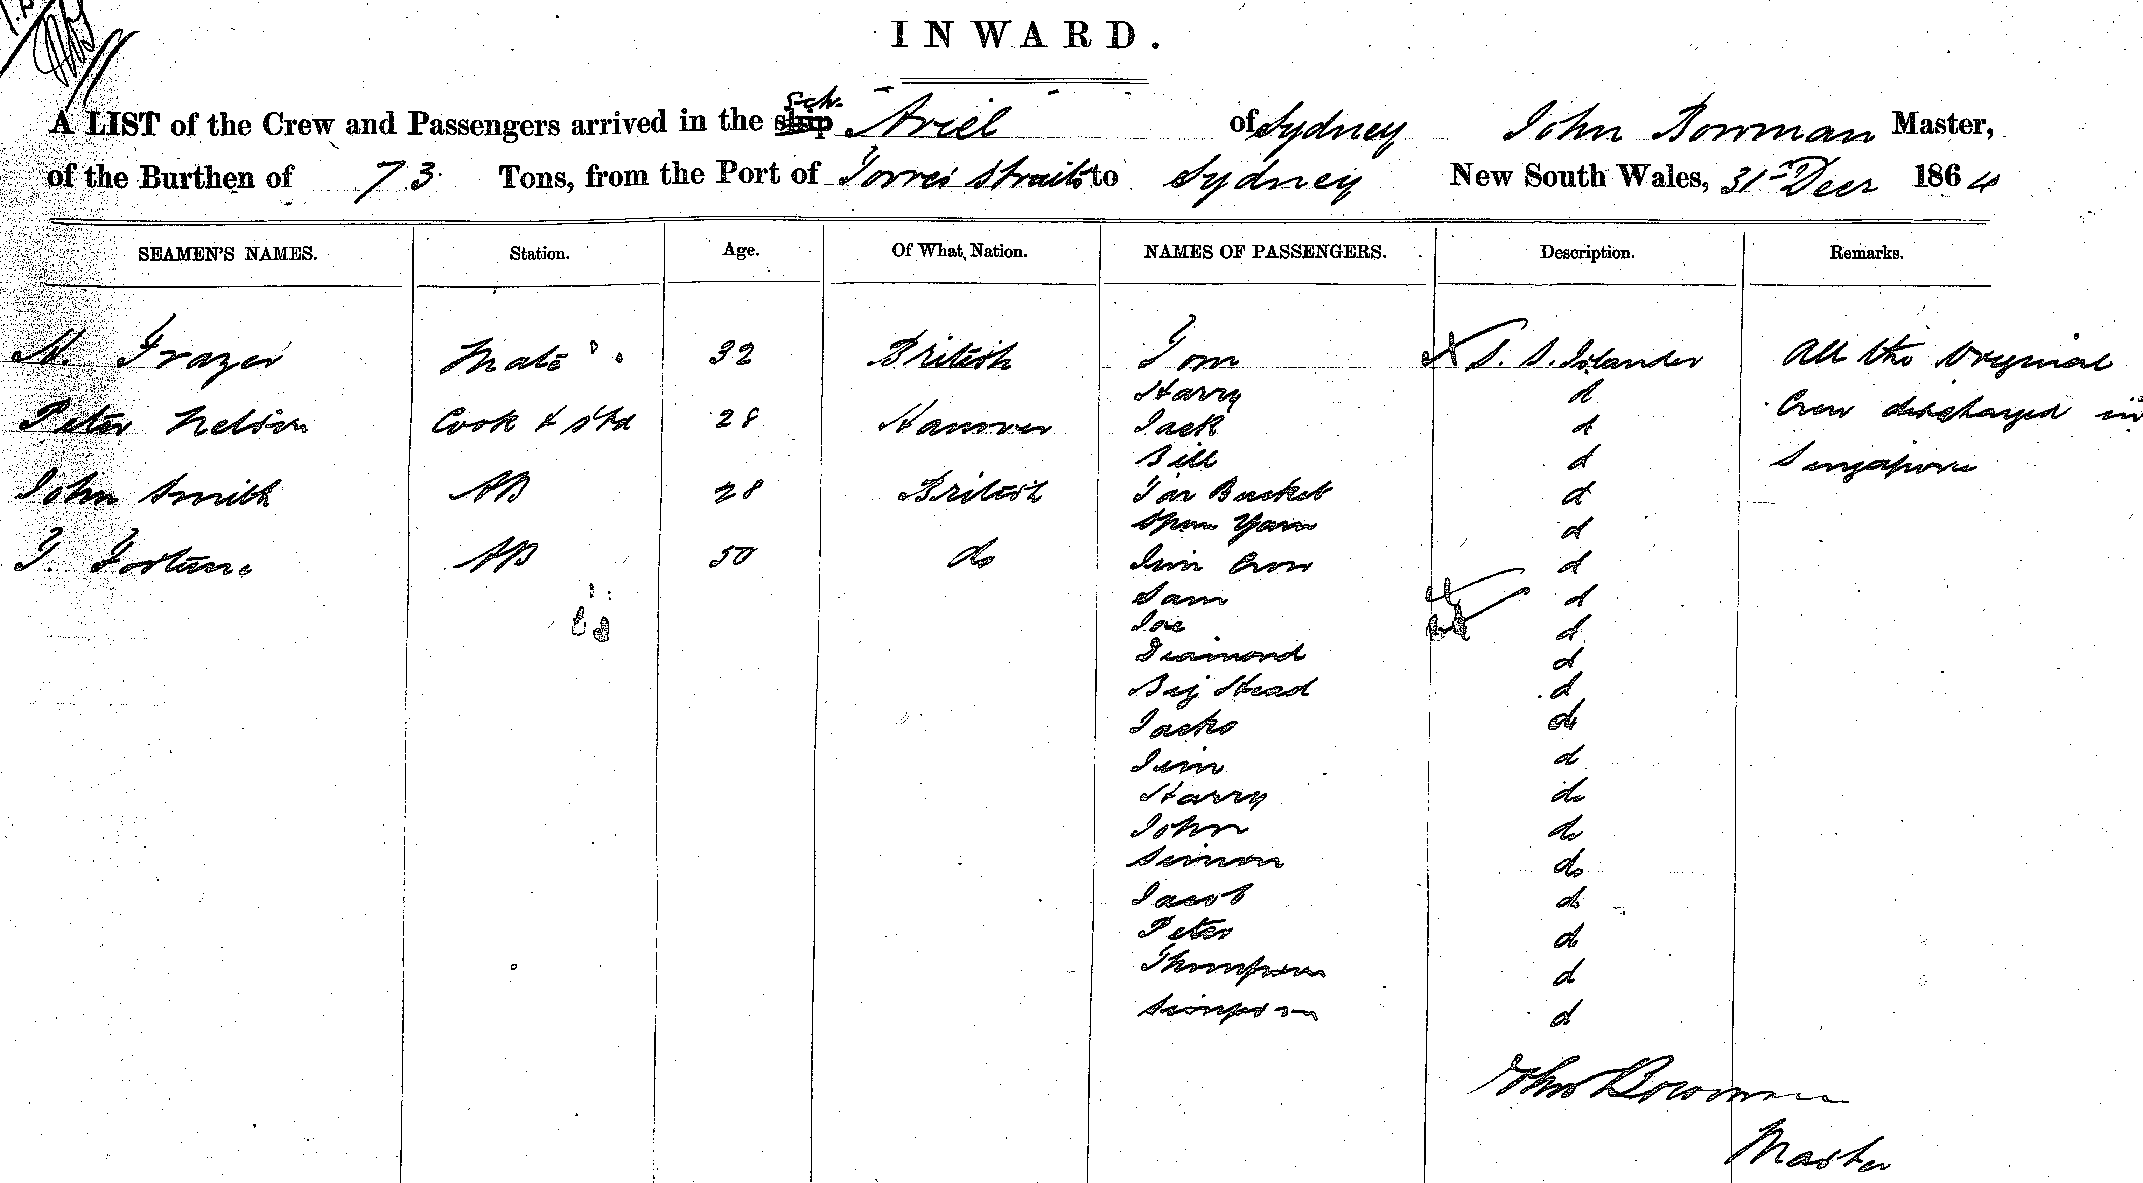 INWARD.
A LIST of the Crew and Passengers arrived in the ship Sch. Ariel of Sydney John Bowman Master,
of the Burthen of 73 Tons, from the Port of Torres Straits to Sydney New South Wales, 31st Decr 1864
SEAMEN'S NAMES. Station. Age. Of What Nation. NAMES OF PASSENGERS. Description. Remarks.
M. Frazer Mate 32 British Tom S. S. Islander All the Original
Harry d
Peter Nelson Cook & Std 28 Hanover Jack d Crew discharged in
Bill d Singapore
John Smith AB 28 British Tar Bucket d
Spun Yarn d
T. Fortune AB 50 do Jim Crow d
Sam d
Joe d
Diamond d
Big Head d
Jacko do
Jim d
Harry do
John do
Simon do
Jacob do
Peter do
Thompson d
Simpson d
John Bowman
Master